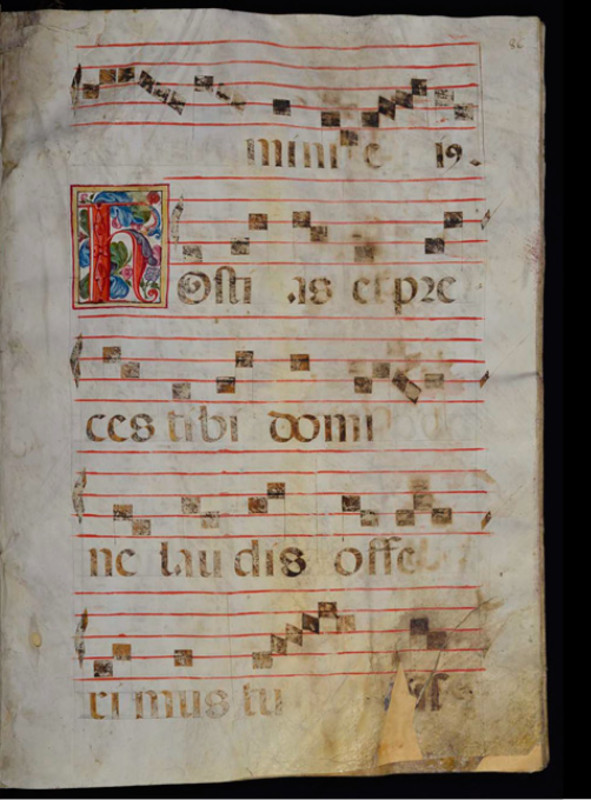 86
mini e ıȷ.
Hosti as et pre
ces tibi domi
ne lau dis offe
ri mus tu